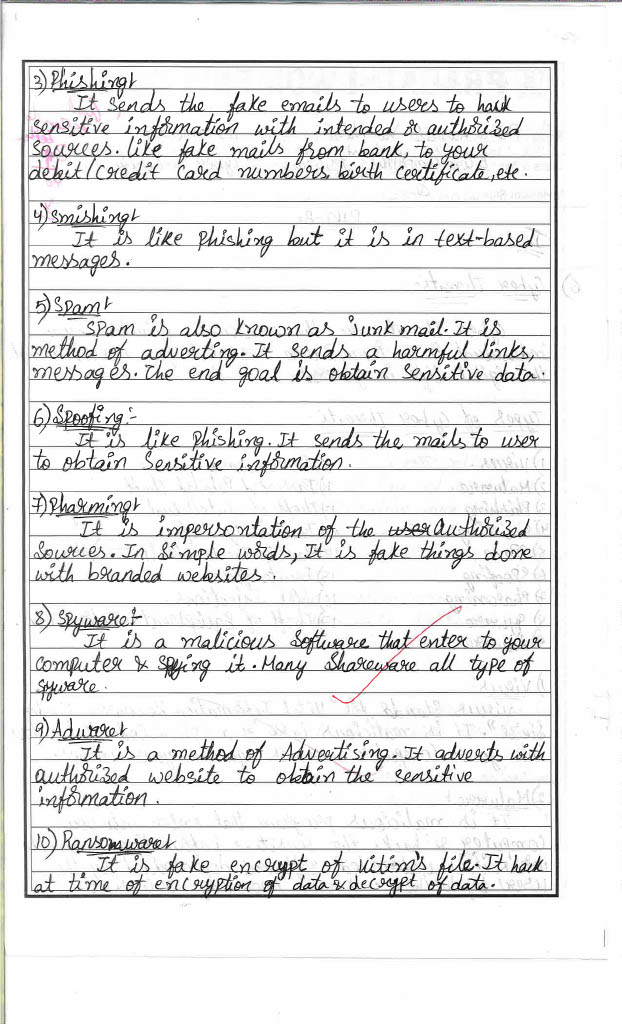 3) Phishing:-
It sends the fake emails to users to hack
sensitive information with intended or authorized
sources. like fake mails from bank, to your
debit/credit card numbers, birth certificate, etc.
4) Smishing:-
It is like Phishing but it is in text-based
messages.
5) Spam:-
Spam is also known as junk mail. It is
method of adverting. It sends a harmful links,
messages. The end goal is obtain sensitive data.
6) Spoofing:-
It is like Phishing. It sends the mails to user
to obtain sensitive information.
7) Pharming:-
It is impersontation of the user authorized
sources. In simple words, It is fake things done
with branded websites.
8) Spyware:-
It is a malicious software that enter to your
computer & spying it. Many shareware all type of
spyware.
9) Adware:-
It is a method of Advertising. It adverts with
authorized website to obtain the sensitive
information.
10) Ransomware:-
It is fake encrypt of vitim's file. It hack
at time of encryption of data & decrypt of data.